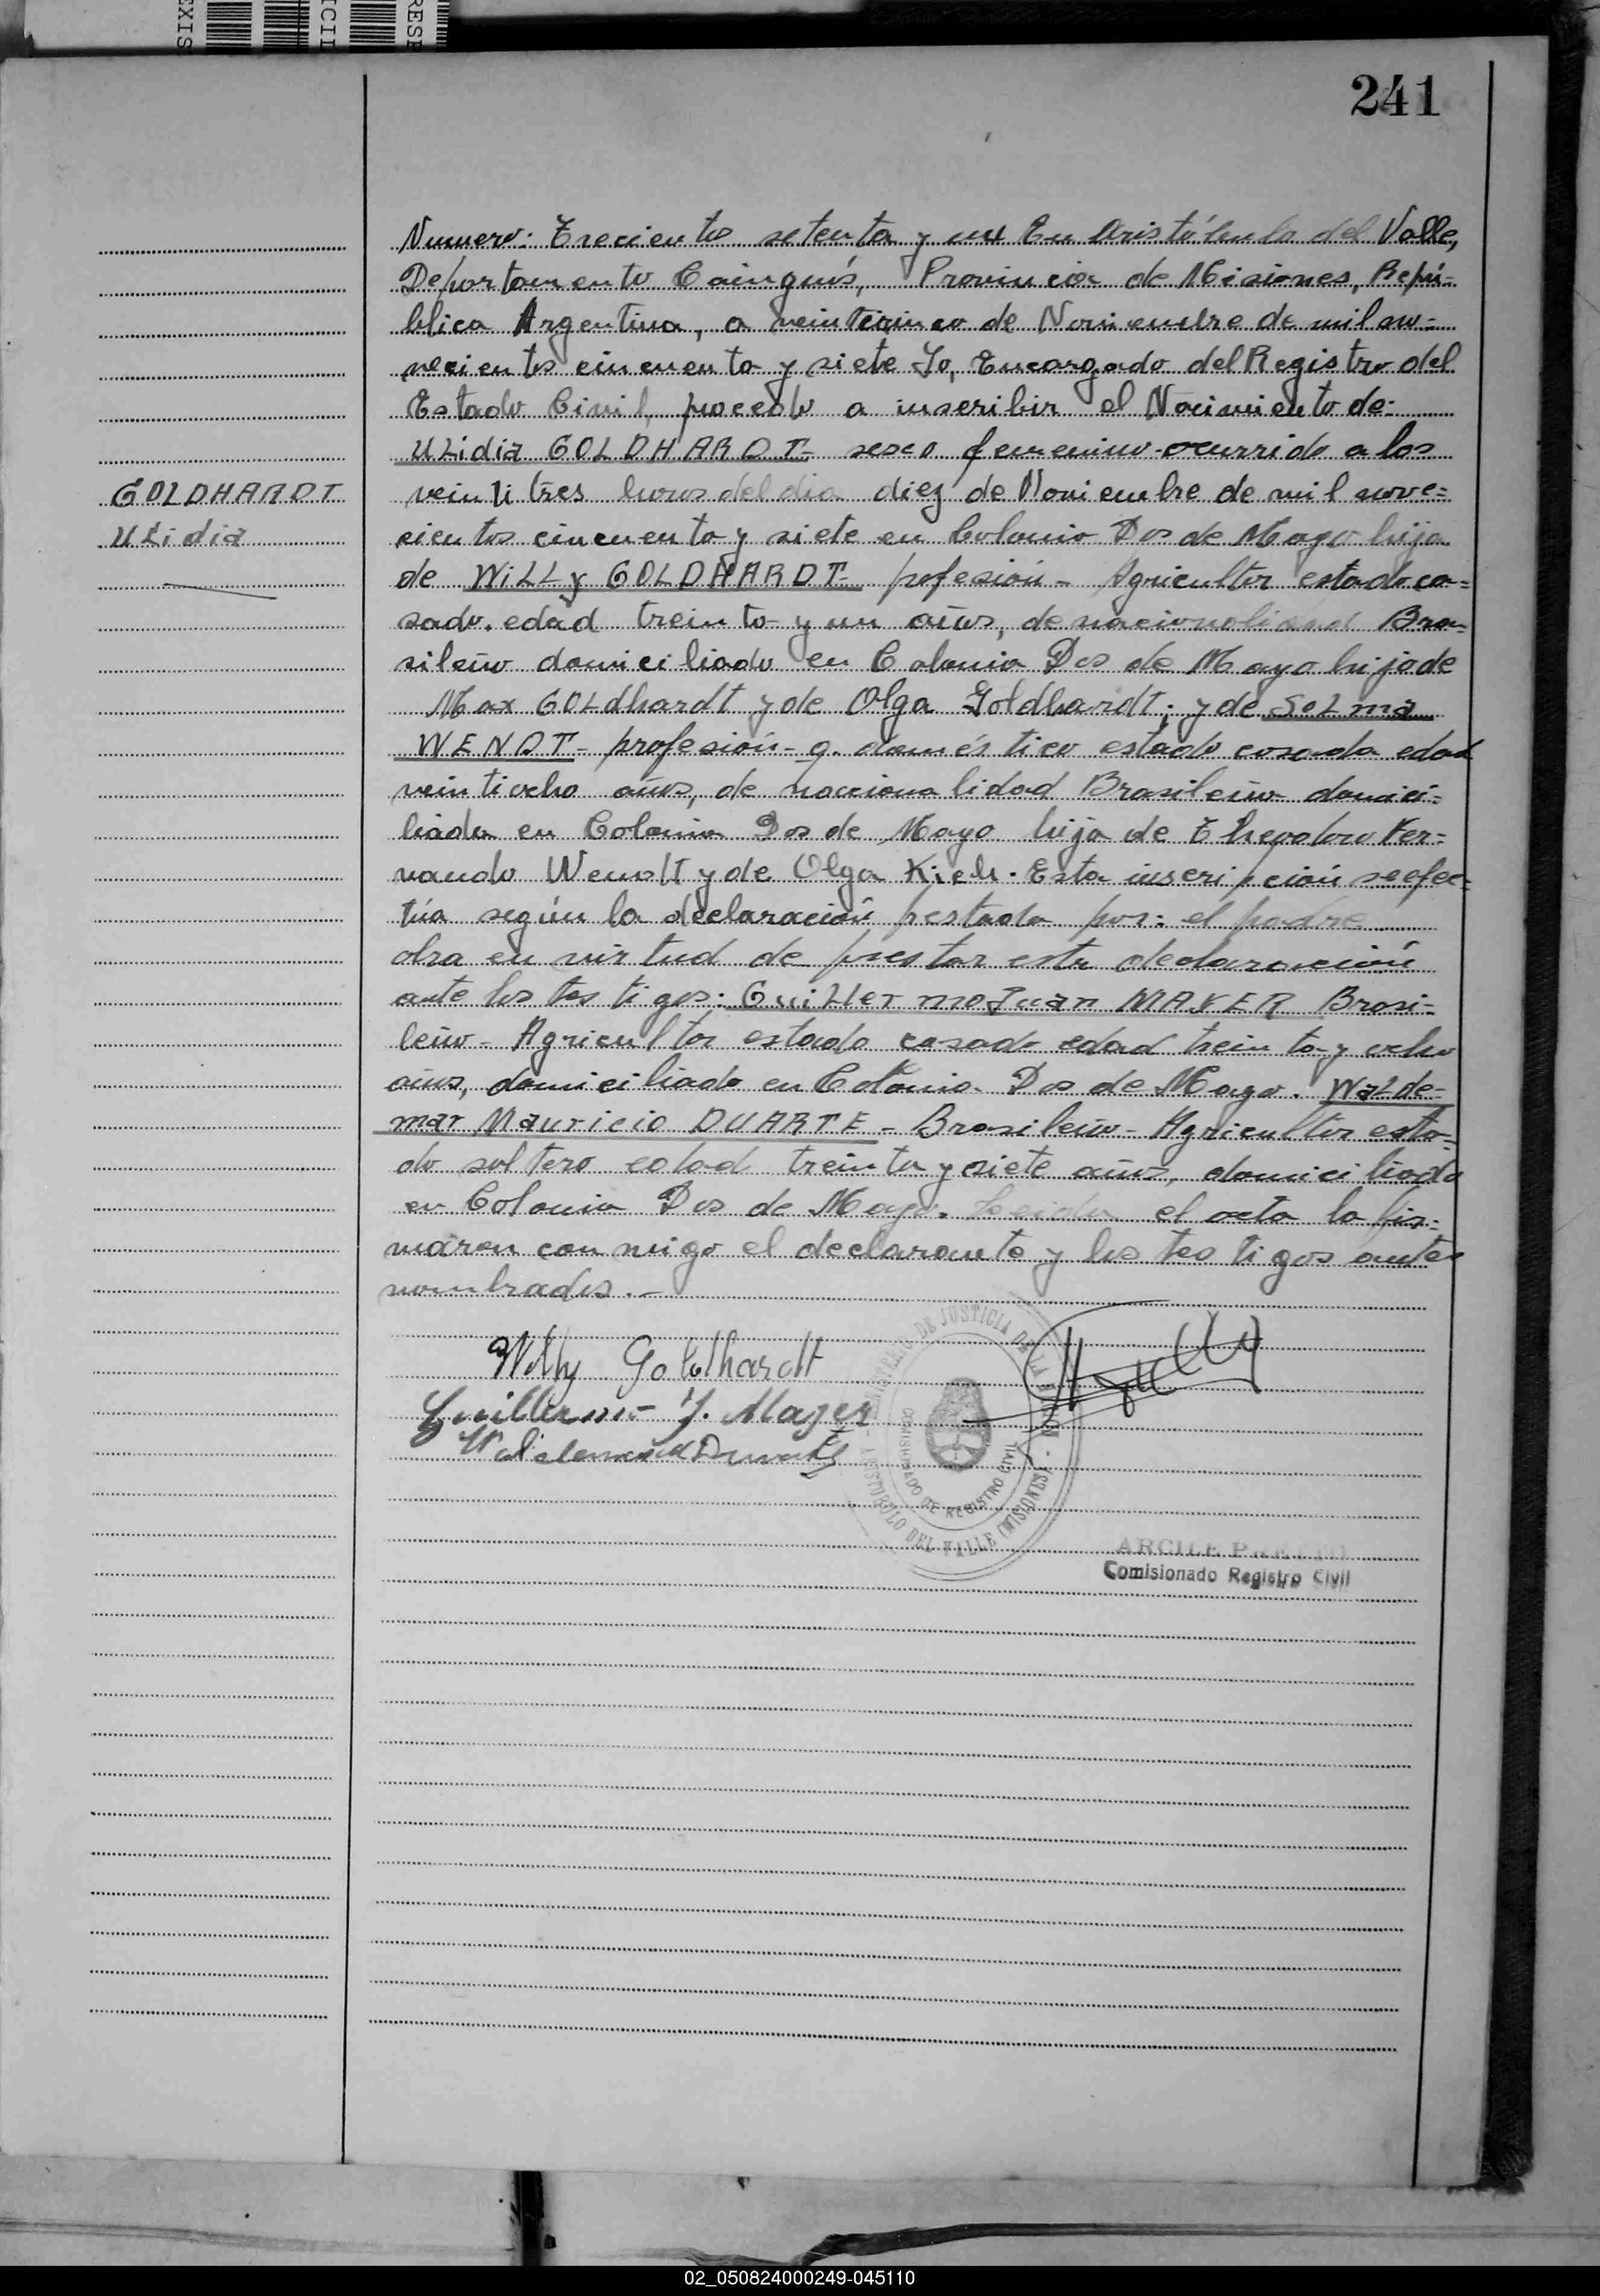 EXIS
ICIL
RESE
241
Numero: Treciento setenta y uno En Aristóbulo del Valle,
Departamento Cainguás, Provincia de Misiones, Repú=
blica Argentina, a veinticinco de Noviembre de mil no=
vecientos cincuenta y siete Yo, Encargado del Registro del
Estado Civil, procedo a inscribir el Nacimiento de:
ULidia GOLDHARDT- sexo femenino-ocurrido a las
GOLDHARDT
ULidia
veintitres horas del dia diez de Noviembre de mil nove=
cientos cincuenta y siete en Colonia Dos de Mayo hija
de WiLLy GOLDHARDT- profesión- Agricultor estado ca=
sado. edad treinta y un años, de nacionalidad Bra=
sileño domiciliado en Colonia Dos de Mayo hijo de
Max GOLdhardt y de Olga Goldhardt; y de SeLma
WENDT- profesión- q. doméstico estado casada edad
veintiocho años, de nacionalidad Brasileña domici=
liada en Colonia Dos de Mayo hija de Theodoro Fer=
nando Wendt y de Olga Kieh. Esta inscripción se efec=
túa según la declaración prestada por: el padre
obra en virtud de prestar esta declaración
ante los testigos: GuiLLermo Juan MAYER Brasi=
leño- Agricultor estado casado edad treinta y ocho
años, domiciliado en Colonia Dos de Mayo. WaLde-
mar Mauricio DUARTE- Brasileño- Agricultor esta=
do soltero edad treinta y siete años, domiciliado
en Colonia Dos de Mayo. Leida el acta la fir=
maron conmigo el declarante y los testigos antes
nombrados.-
Willy Goldhardt
Guillermo J. Mayer
Waldemar M Duarte
MINISTERIO DE JUSTICIA DE LA NACION
COMISIONADO DE REGISTRO CIVIL
ARISTOBULO DEL VALLE (MISIONES)
ARCILE
Comisionado Registro Civil
02_050824000249-045110